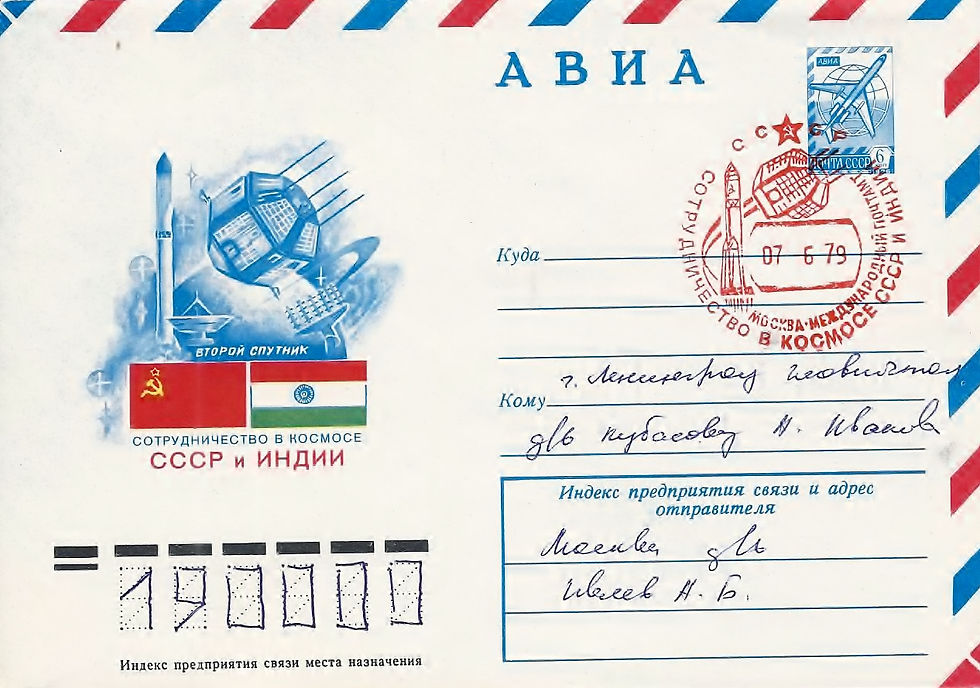 АВИА
АВИА
ПОЧТА СССР 6
СССР
СОТРУДНИЧЕСТВО В КОСМОСЕ СССР И ИНДИИ
МОСКВА-МЕЖДУНАРОДНЫЙ ПОЧТАМТ
07 6 79
Куда
ВТОРОЙ СПУТНИК
СОТРУДНИЧЕСТВО В КОСМОСЕ
СССР и ИНДИИ
г. Ленинград
Кому
Кубасову
Индекс предприятия связи и адрес
отправителя
Москва
Ивлев А. Б.
190000
Индекс предприятия связи места назначения